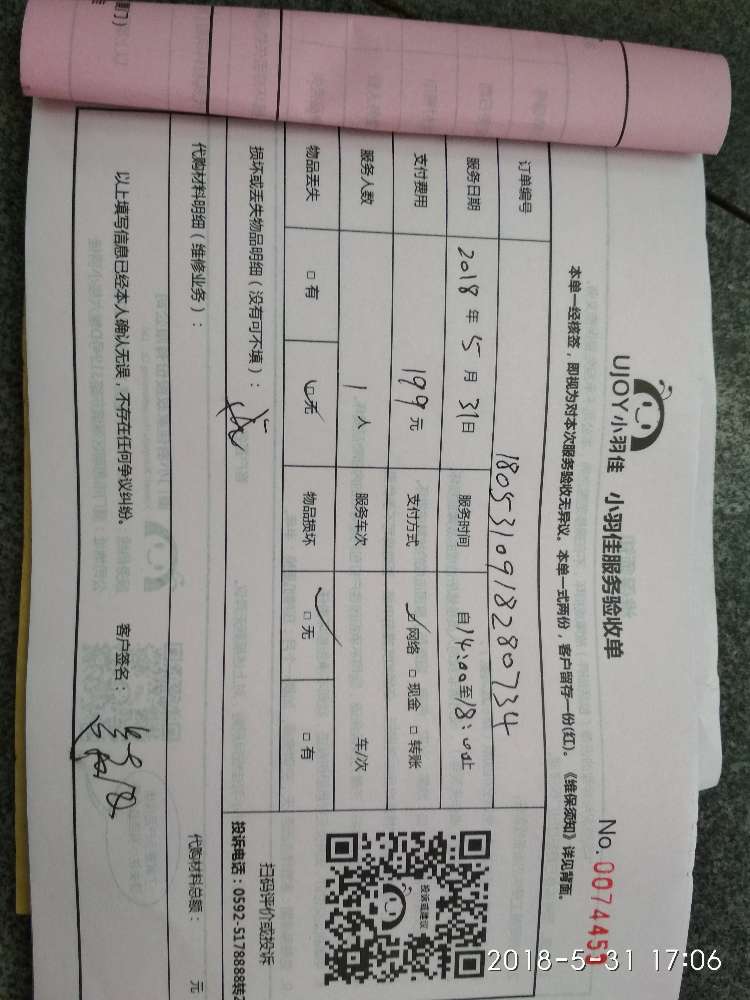 UJOY小羽佳 小羽佳服务验收单
No. 0074450
本单一经核签，即视为对本次服务验收无异议。本单一式两份，客户留存一份(红)。《维保须知》详见背面。
订单编号 1805310918280734
服务日期 2018 年 5 月 31 日 服务时间 自 14:00 至 18:00 止
支付费用 199 元 支付方式 ☑ 网络 □ 现金 □ 转账
服务人数 1 人 服务车次 车/次
物品丢失 □ 有 ☑ 无 物品损坏 ☑ 无 □ 有
投诉或建议
损坏或丢失物品明细（没有可不填）： 无
扫码评价或投诉
投诉电话：0592-5178888转2
代购材料明细（维修业务）：
代购材料总额： 元
以上填写信息已经本人确认无误，不存在任何争议纠纷。 客户签名：
2018-5-31 17:06